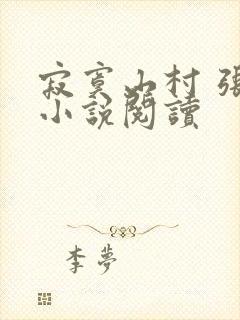 寂寞山村 張
小說閱讀
李夢